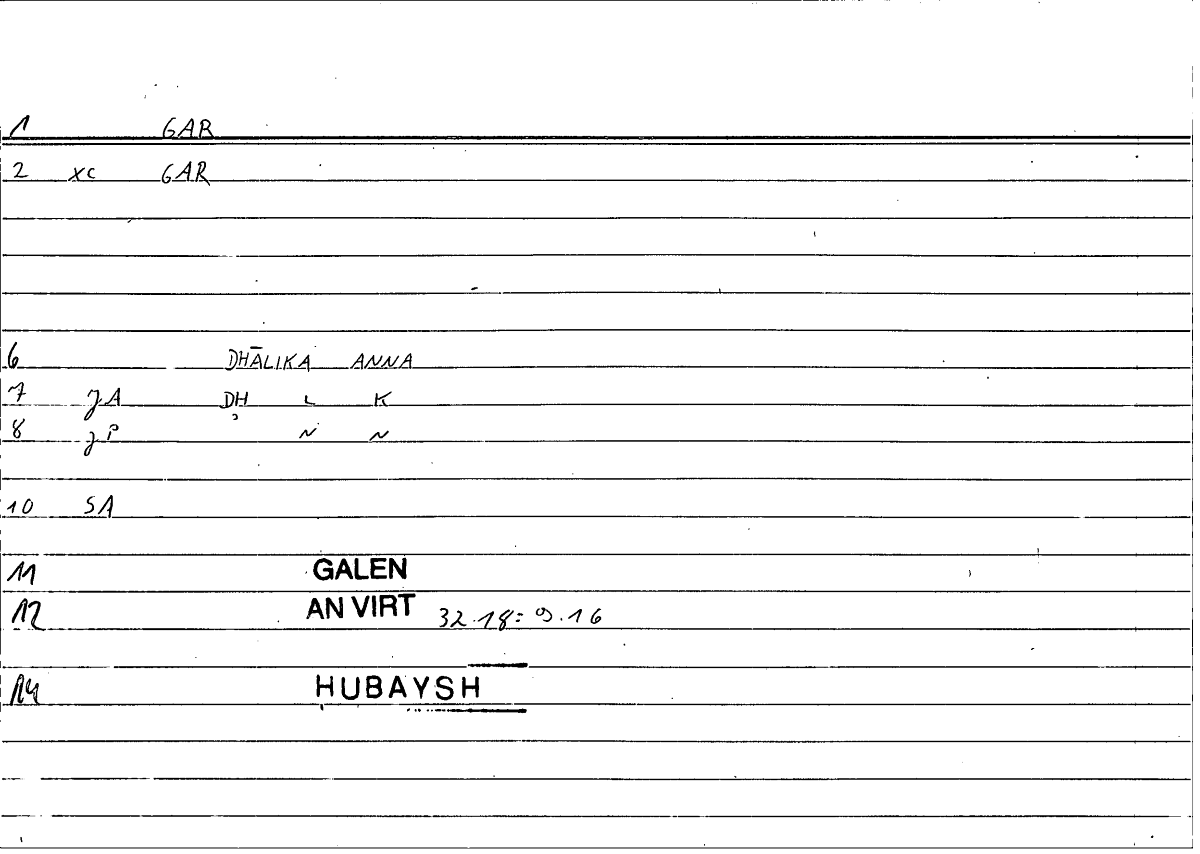 1 GAR
2 XC GAR
6 DHĀLIKA ANNA
7 JA DH L K
8 JP ʾ N N
10 SA
11 GALEN
12 AN VIRT 32.18 = 9.16
14 HUBAYSH